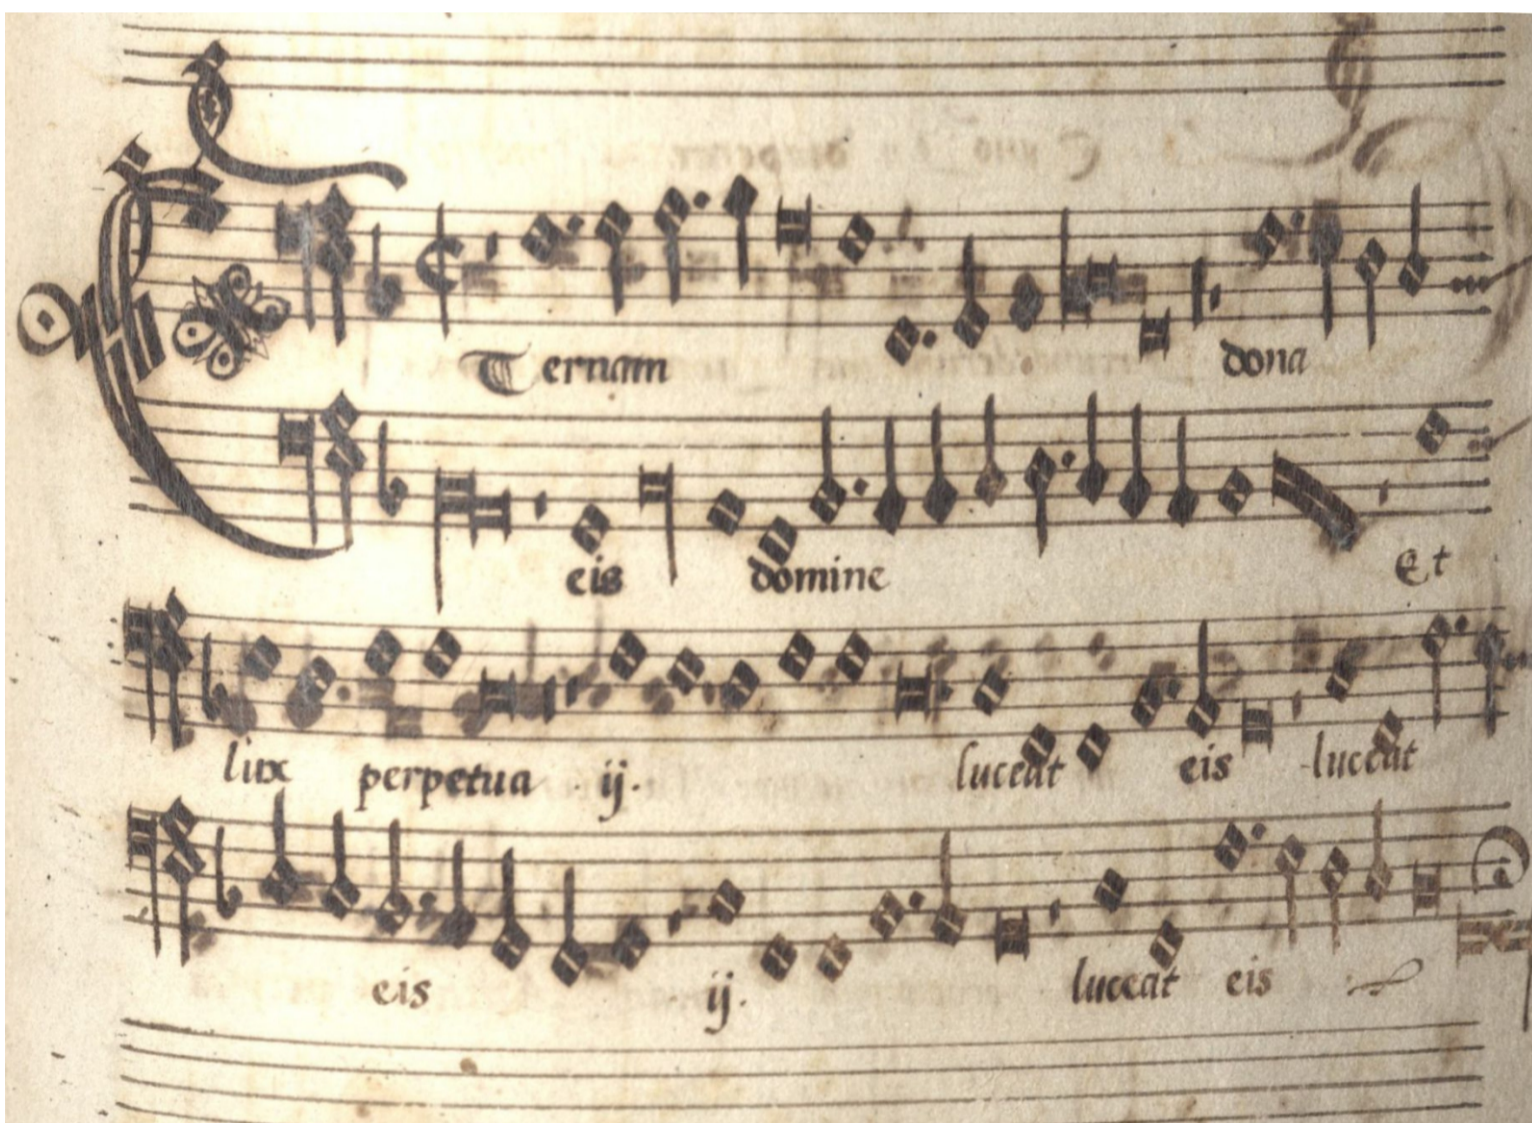 Æternam dona
eis domine Et
lux perpetua ij. luceat eis luceat
eis ij. luceat eis